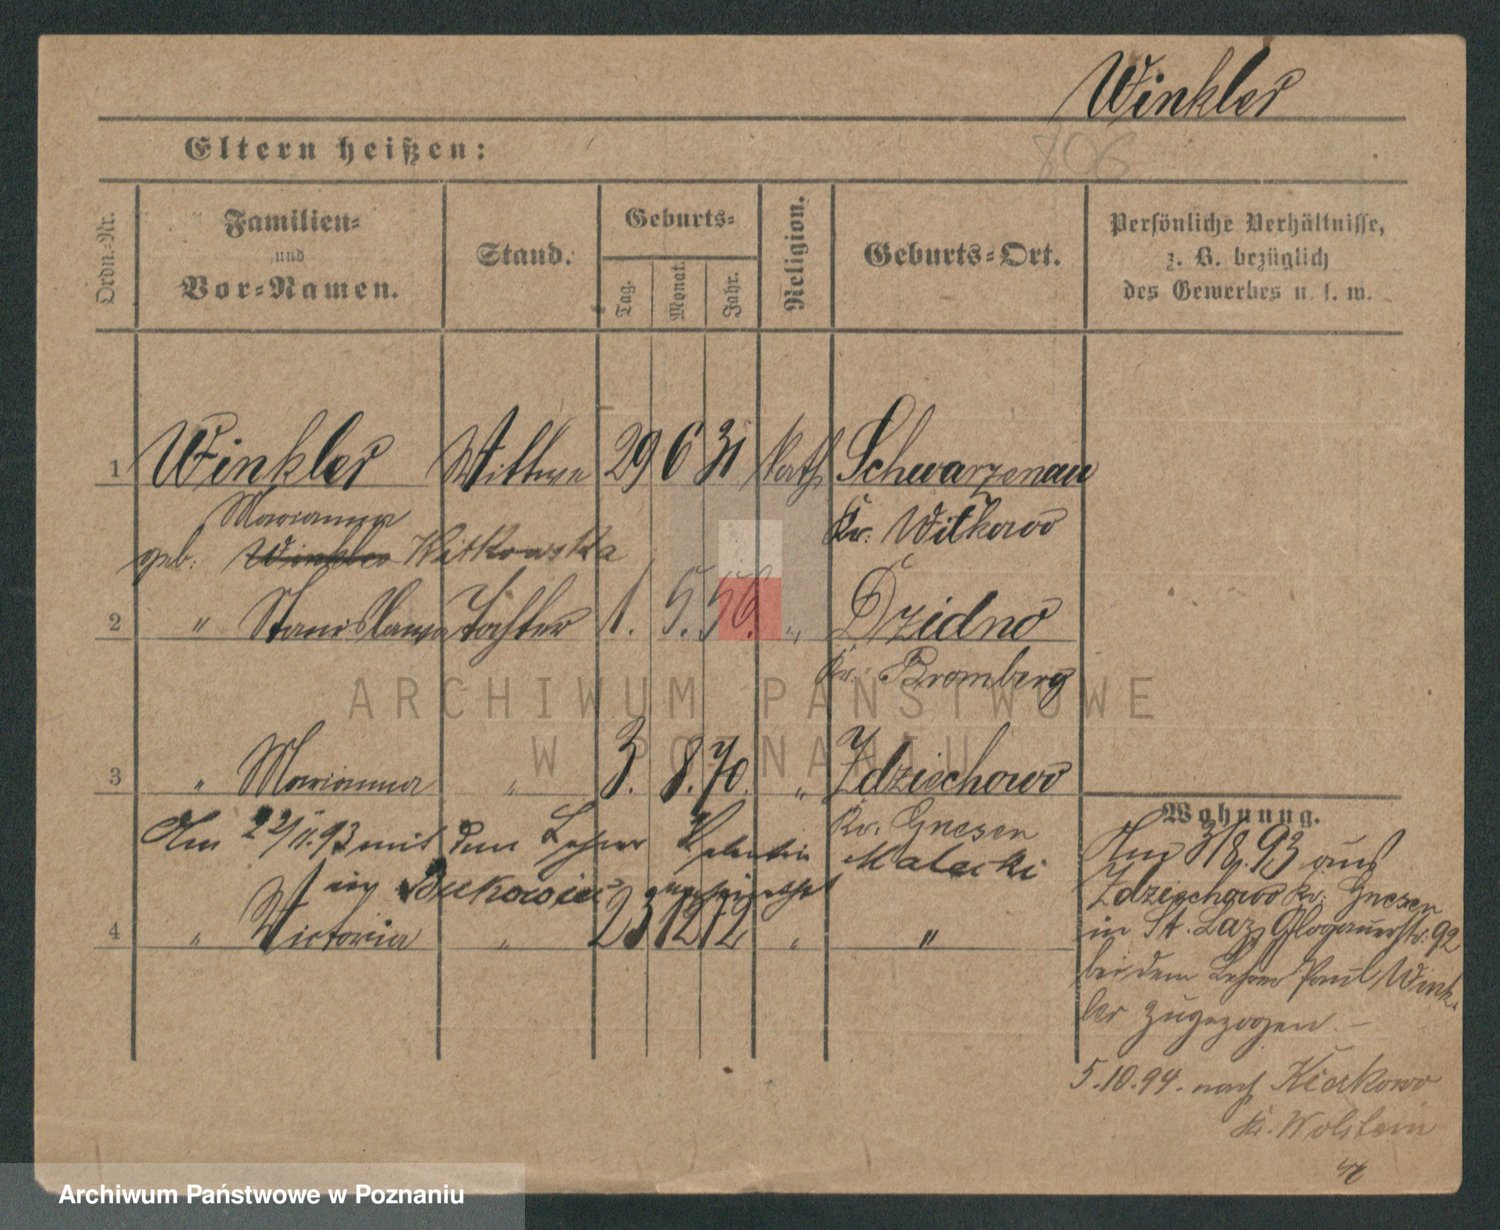 Winkler
806
Eltern heißen:
Ordn.-Nr.
Familien-
und
Vor-Namen.
Stand.
Geburts-
Tag.
Monat.
Jahr.
Religion.
Geburts-Ort.
Persönliche Verhältnisse,
z. B. bezüglich
des Gewerbes u. s. w.
1 Winkler Wittwe 29 6 31 kath. Schwarzenau
Marianna Kr. Witkowo
geb. Winkler Witkowska
2 " Stanislawa Tochter 1. 5. 56. " Dzidno
Kr. Bromberg
ARCHIWUM PAŃSTWOWE
W POZNANIU
3 " Marianna " 3. 8. 70. " Zdziechowo
Kr. Gnesen
Am 22/11.93 mit dem Lehrer Valentin Malecki
in
4 " Victoria " 23 12 72 " "
Wohnung.
Am 3/8.93 aus
Zdziechowo Kr. Gnesen
in St. Laz. Glogauerstr. 92
bei dem Lehrer Paul Wink-
ler zugezogen. –
5.10.94. nach
Kr. Wolstein
Archiwum Państwowe w Poznaniu